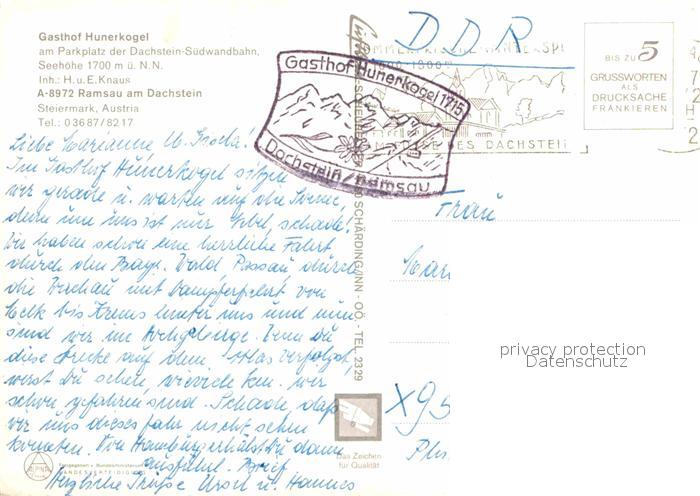 Gasthof Hunerkogel
am Parkplatz der Dachstein-Südwandbahn,
Seehöhe 1700 m ü. N.N.
Inh.: H. u. E. Knaus
A-8972 Ramsau am Dachstein
Steiermark, Austria
Tel.: 03687/8217
Liebe Marianne u.
Im Gasthof Hunerkogel sitzen
wir gerade u. warten auf die Sonne,
denn um uns ist nur Nebel, schade!
Wir haben schon eine herrliche Fahrt
durch den Bayr. Wald, Passau durch
die Wachau mit Dampferfahrt von
Melk bis Krems hinter uns und nun
sind wir im Hochgebirge. Wenn Du
diese Strecke auf dem Atlas verfolgst,
wirst Du sehen, wieviele km. wir
schon gefahren sind. Schade, daß
wir uns dieses Jahr nicht sehen
konnten. Von Hamburg erhältst Du dann
ausführl. Brief.
Herzliche Grüße Ursel u. Hannes
DDR
Gasthof Hunerkogel 1715
Dachstein / Ramsau
BIS ZU 5
GRUSSWORTEN
ALS
DRUCKSACHE
FRANKIEREN
DES DACHSTEIN
SCHÄRDING/INN - OÖ. - TEL. 2329
Frau
X95
Das Zeichen
für Qualität
Freigegeben v. Bundesministerium
LANDESVERTEIDIGUNG
privacy protection
Datenschutz